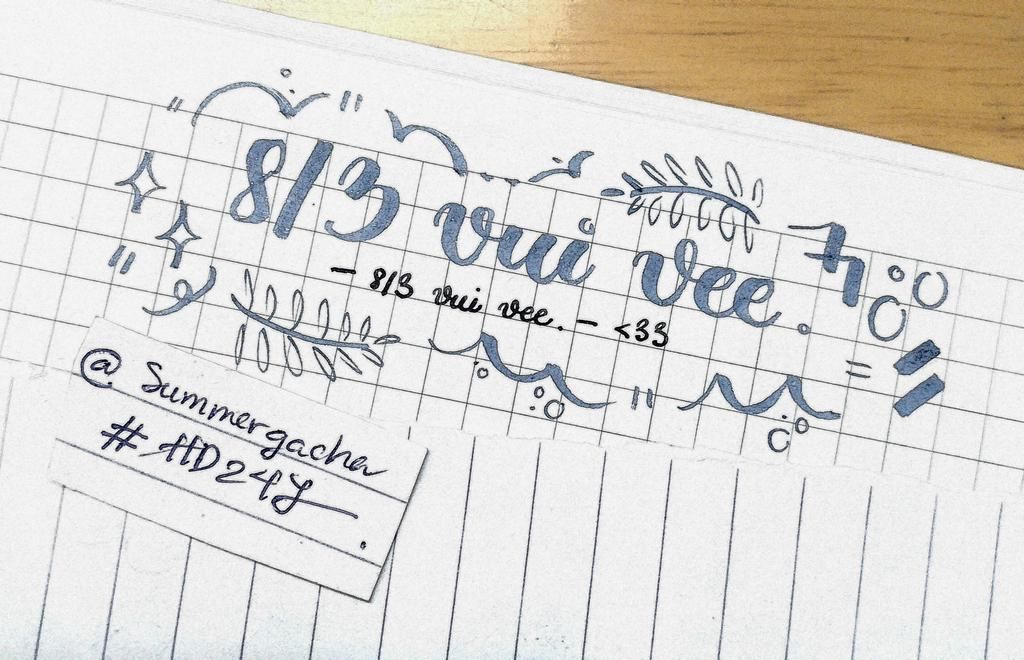 8/3 vui vee.
- 8/3 vui vee. - <33
@ Summergacha
# HD24Y